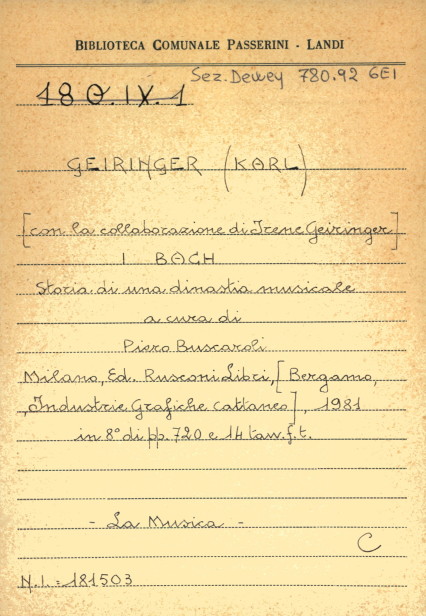 BIBLIOTECA COMUNALE PASSERINI - LANDI
Sez. Dewey 780.92 GEI
180.IX.1
GEIRINGER (KARL)
[con la collaborazione di Irene Geiringer]
I BACH
Storia di una dinastia musicale
a cura di
Piero Buscaroli
Milano, Ed. Rusconi Libri, [Bergamo,
Industrie Grafiche Cattaneo], 1981
in 8° di pp. 720 e 14 tav. f.t.
- La Musica -
C
N.I. = 181503